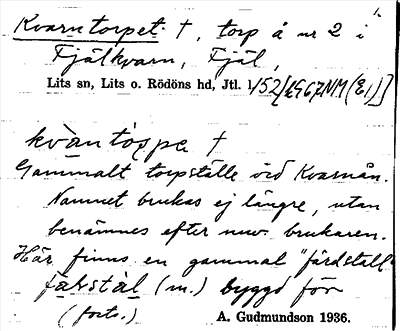 1.
Kvarntorpet †, torp å nr 2 i
Fjälkvarn, Fjäl,
Lits sn, Lits o. Rödöns hd, Jtl. 152/1967NM(E1)]
kvàntòṣpe †
Gammalt torpställe vid Kvarnån.
Namnet brukas ej längre, utan
benämnes efter nuv. brukaren.
Här finns en gammal "färdstall"
(m.) byggd för
(forts.) A. Gudmundson 1936.